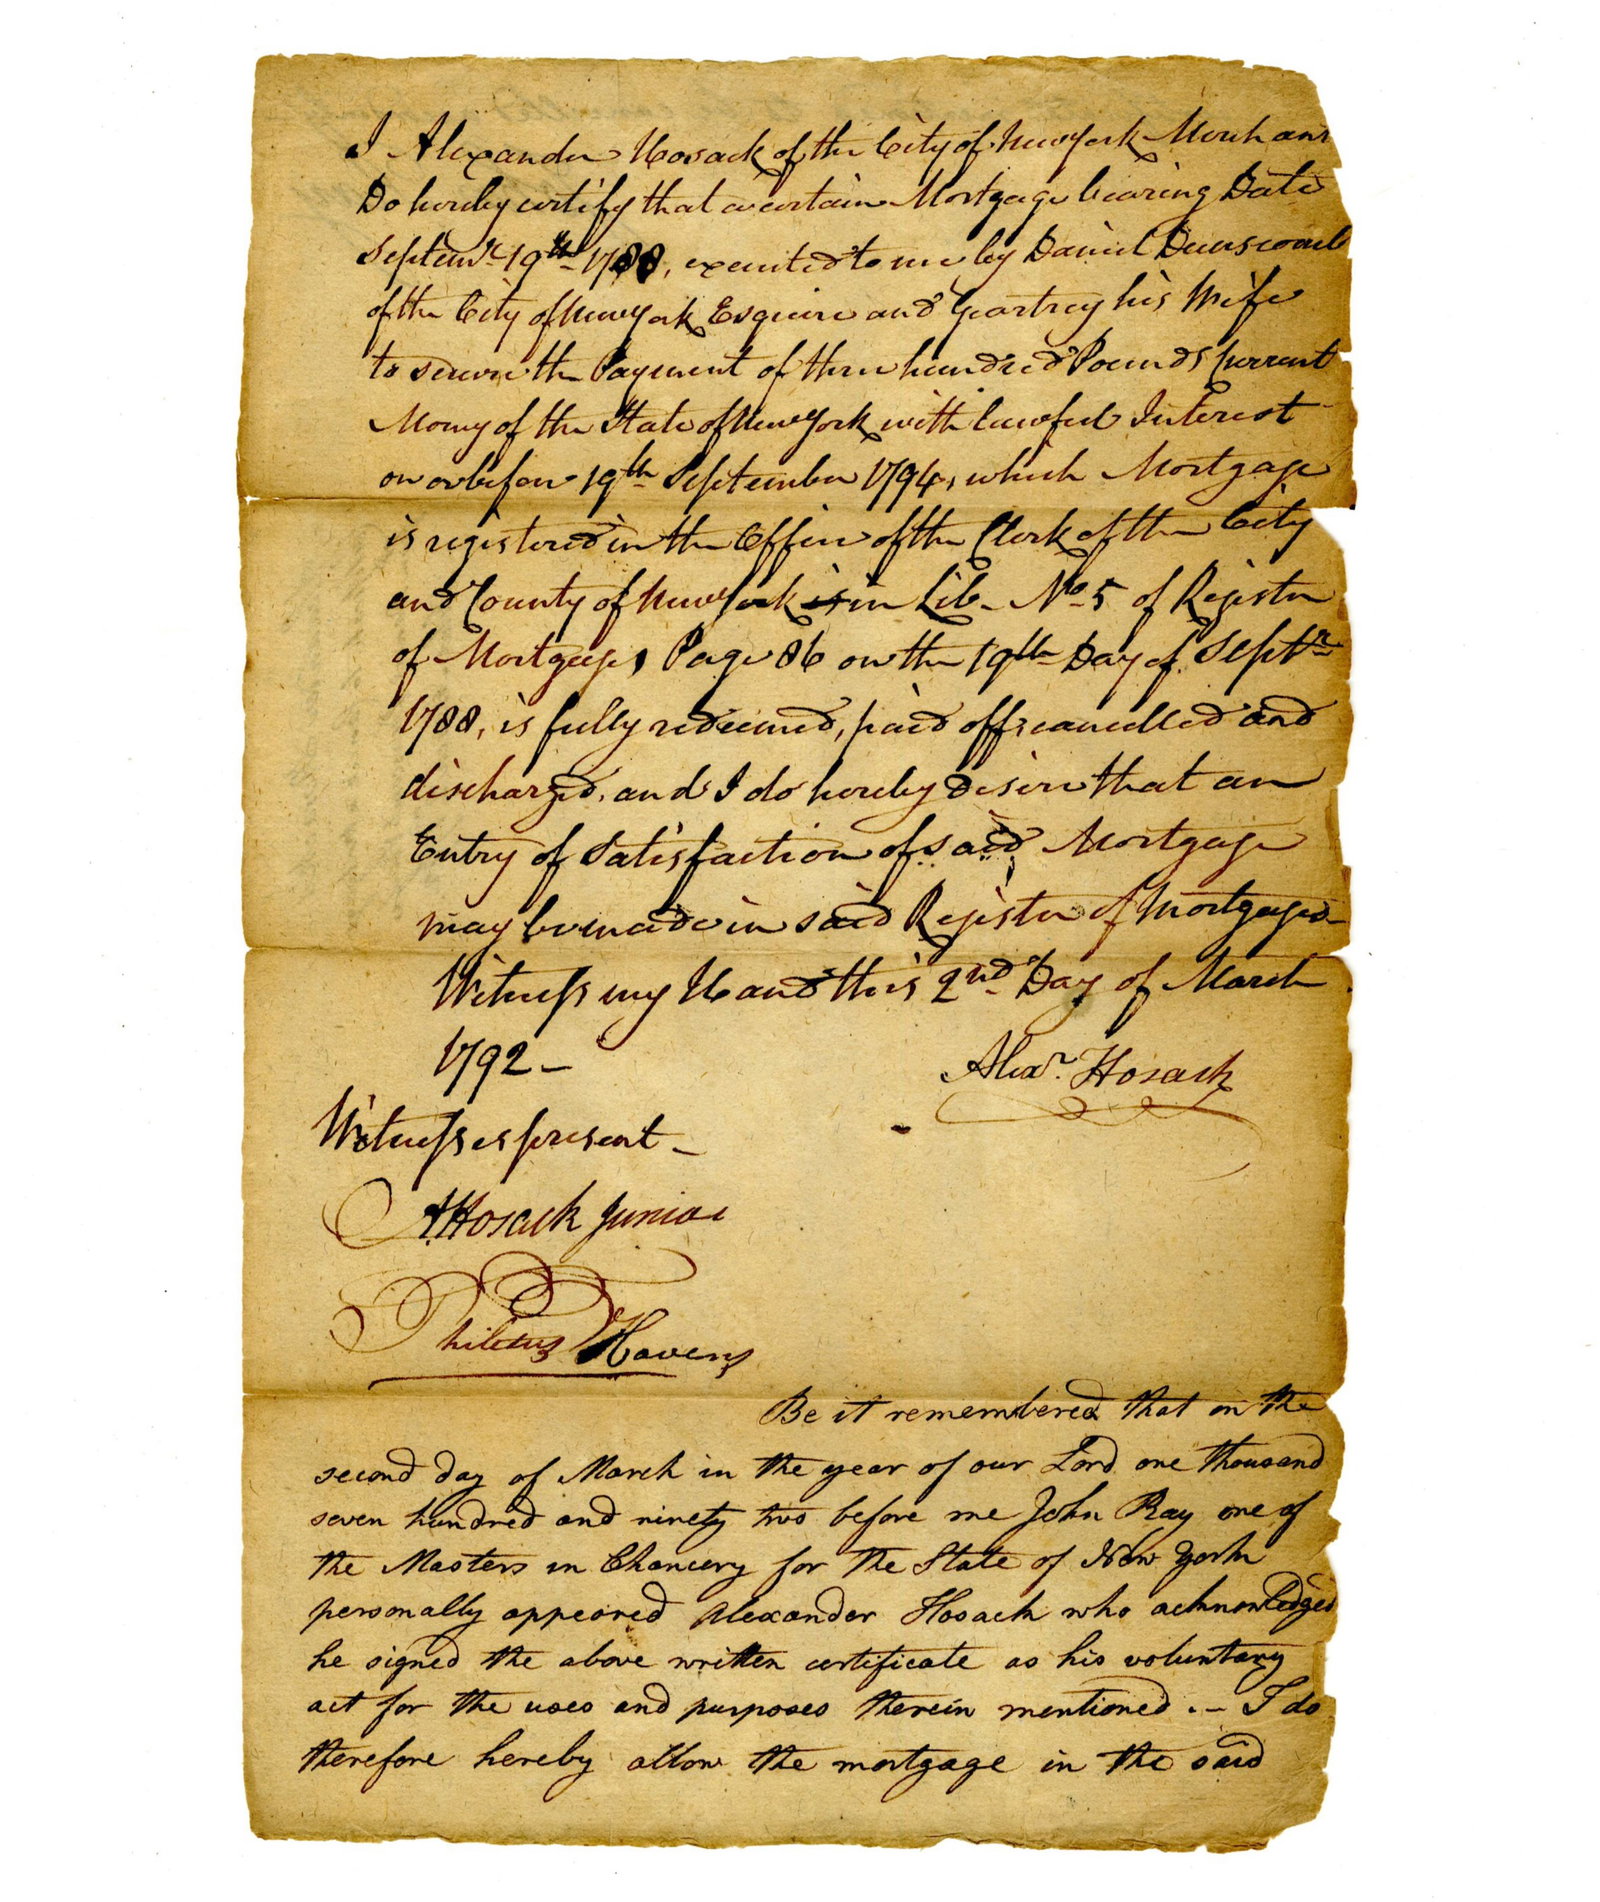 I Alexander Hosack of the City of New York Merchant
Do hereby certify that a certain Mortgage bearing Date
Septemr. 19th 1788, executed to me by Daniel Dunscomb
of the City of New York Esquire and Geartrey his Wife
to secure the Payment of three hundred Pounds Current
Money of the State of New York with lawful Interest
on or before 19th September 1794, which Mortgage
is registered in the Office of the Clerk of the City
and County of New York is in Lib. No. 5 of Register
of Mortgages, Page 86 on the 19th Day of Septr.
1788, is fully redeemed, paid off, cancelled and
discharged, and I do hereby desire that an
Entry of Satisfaction of said Mortgage
may be made in said Register of Mortgages
Witness my Hand this 2nd Day of March
1792 –
Alexr. Hosack
Witnesses present –
A Hosack Junior
Philetus Havens
Be it remembered that on the
second day of March in the year of our Lord one thousand
seven hundred and ninety two before me John Ray one of
the Masters in Chancery for the State of New York
personally appeared Alexander Hosack who acknowledged
he signed the above written certificate as his voluntary
act for the uses and purposes therein mentioned. – I do
therefore hereby allow the mortgage in the said